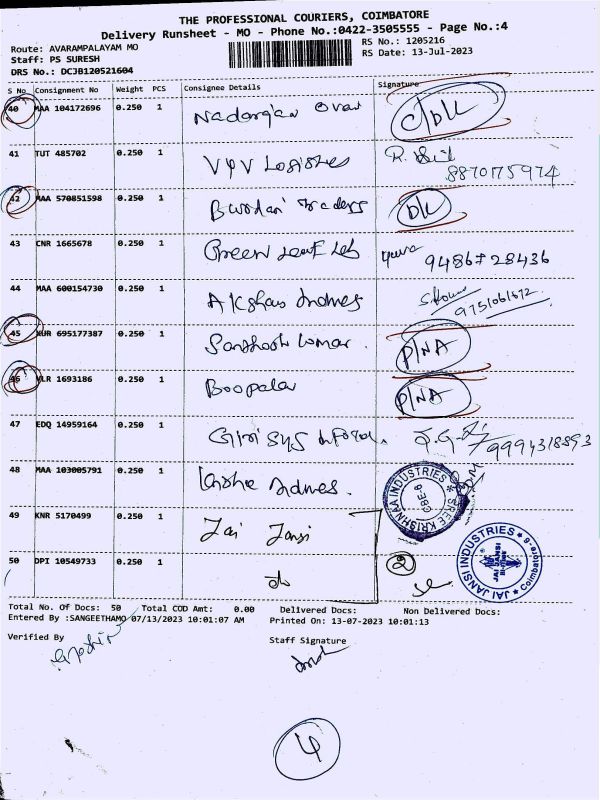 THE PROFESSIONAL COURIERS, COIMBATORE
Delivery Runsheet - MO - Phone No.:0422-3505555 - Page No.:4
Route: AVARAMPALAYAM MO RS No.: 1205216
Staff: PS SURESH RS Date: 13-Jul-2023
DRS No.: DCJB120521604
S No Consignment No Weight PCS Consignee Details Signature
40 MAA 104172696 0.250 1
41 TUT 485702 0.250 1 V4V Logistics 8870775974
42 MAA 570851598 0.250 1 traders D/L
43 CNR 1665678 0.250 1 Green Leaf Lab 9486728436
44 MAA 600154730 0.250 1 Akshau Indnes 9751061672
45 695177387 0.250 1 Santhosh kumar. P/NA
46 VLR 1693186 0.250 1 Boopalar P/NA
47 EDQ 14959164 0.250 1 Giri sys
48 MAA 103005791 0.250 1 Indnes.
SREE KRISHNAA INDUSTRIES CBE-6
49 KNR 5170499 0.250 1 Jai Jansi
JAI JANSI INDUSTRIES Coimbatore-6
50 DPI 10549733 0.250 1 do 2
Total No. Of Docs: 50 Total COD Amt: 0.00 Delivered Docs: Non Delivered Docs:
Entered By :SANGEETHAMO 07/13/2023 10:01:07 AM Printed On: 13-07-2023 10:01:13
Verified By Staff Signature
4